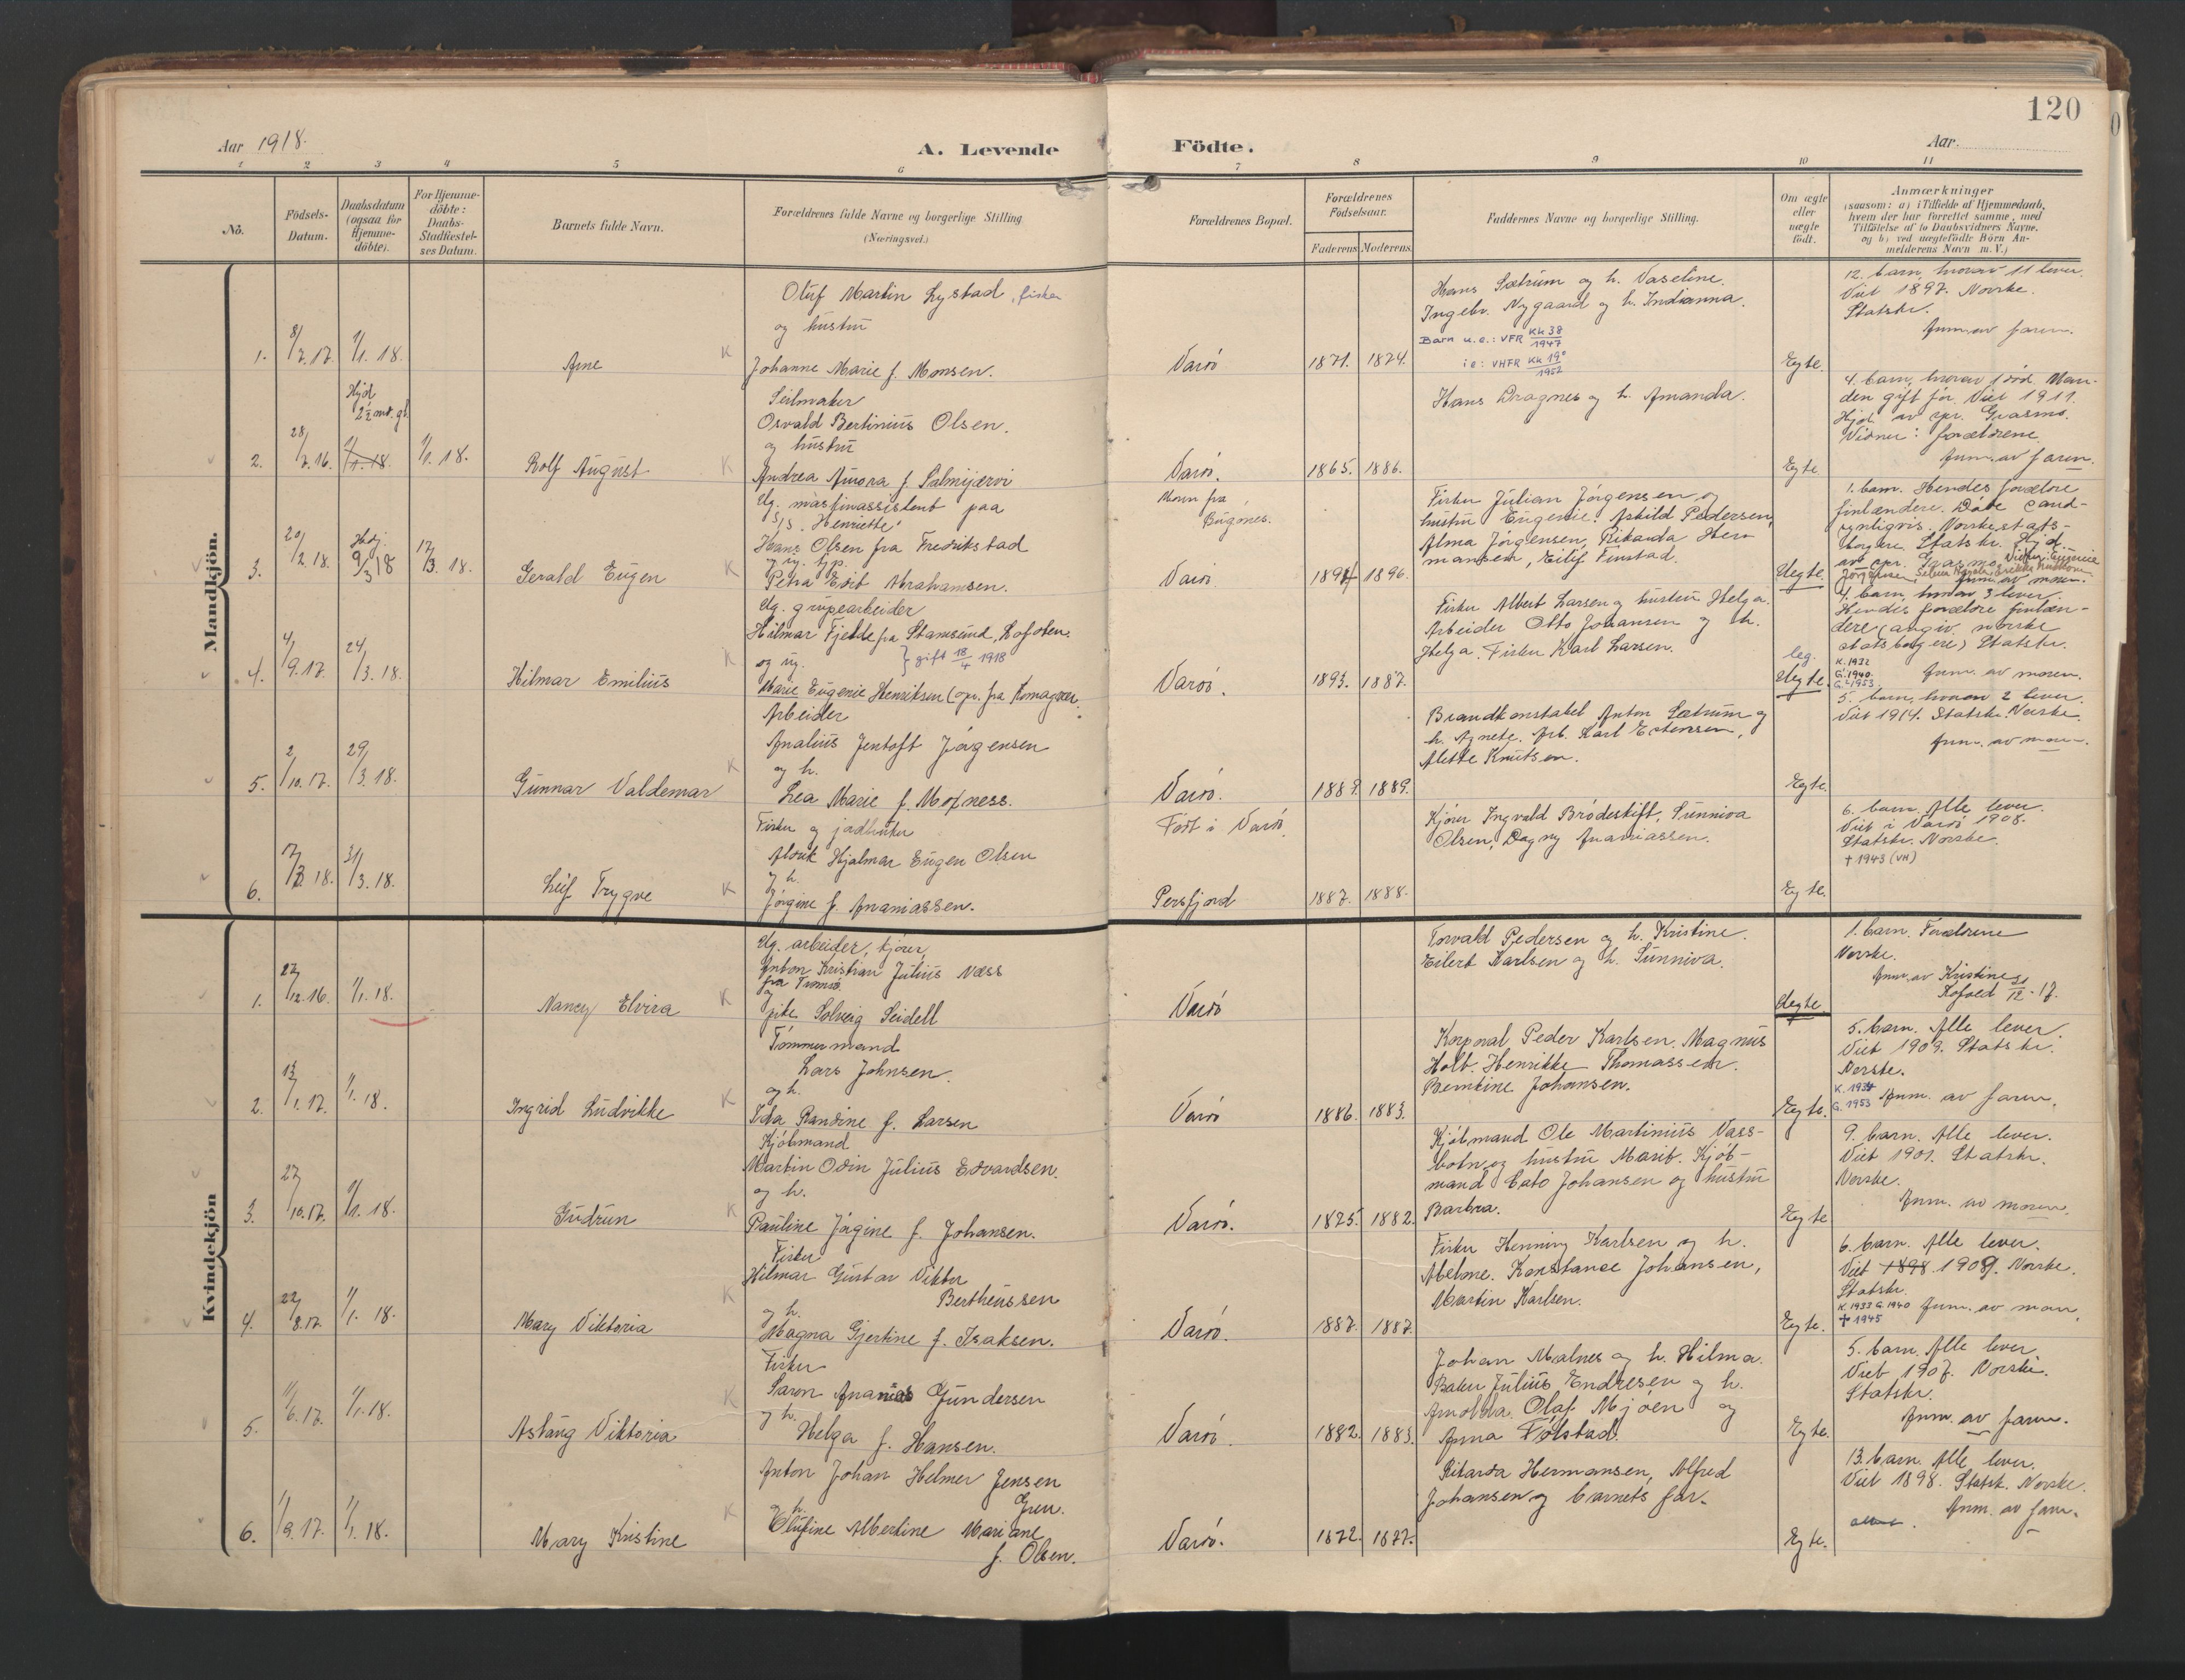 120
Aar 1918.
A. Levende Födte.
Aar
1 2 3 4 5 6 7 8 9 10 11
No.
Födsels-
Datum.
Daabsdatum
(ogsaa for
Hjemme-
döbte).
For Hjemme-
döbte:
Daabs-
Stadfæstel-
ses Datum.
Barnets fulde Navn.
Forældrenes fulde Navne og borgerlige Stilling
(Næringsvei.)
Forældrenes Bopæl.
Forældrenes
Födselsaar.
Faderens Moderens
Faddernes Navne og borgerlige Stilling.
Om ægte
eller
uægte
födt.
Anmærkninger
(saasom: a) i Tilfælde af Hjemmedaab,
hvem der har forrettet samme, med
Tilföielse af to Daabsvidners Navne.
og b) ved uægtefödte Börn An-
melderens Navn m. V.)
Mandkjön.
1. 8/7.17. 1/1.18.
Arne
K
Oluf Martin Lystad, fisker
og hustru
Johanne Marie f. Monsen.
Vardö 1871. 1874.
Hans Sætrum og h. Vaseline.
Ingebr. Nygaard og h. Indianna.
Barn u.e.: VFR Kk 38/1947
i e: VHFR Kk 19/1952
Egte.
12. barn, hvorav 11 lever.
Viet 1897. Norske.
Statskr.
Anm. av faren.
2. 28/7.16.
Hjd
2½ md. gl.
1/1.18. 1/1.18.
Rolf August
K
Seilmaker
Osvald Bertinius Olsen.
og hustru
Andrea Aurora f. Salmijærvi
Vardö. 1865. 1886.
Hans Dragnes og h. Amanda.
Egte
4. barn, hvorav 1 död. Man-
den gift för. Viet 1911.
Hjd. av spr. Grasmo.
Vidner: forældrene.
Anm. av faren.
3. 20/2.18.
Hdj.
9/3 18 17/3.18.
Gerald Eugen
K
Ug. maskinassistent paa
S/S. "Henriette"
Hans Olsen fra Fredrikstad
og ug. tp.
Petra Edit Abrahamsen.
Moren fra
Bugönes.
Vardö. 1894 1896.
Fisker Julian Jörgensen og
hustru Eugenie. Askild Pedersen,
Alma Jörgensen, Rikarda Her-
mansen, Eilif Finstad.
Uegte.
1. barn. Hendes forældre
finlændere. Döbe sand-
synligvis. Norske stats-
borgere. Statskr. Hjd.
av spr. Grasmo. Vidner: Eugenie
Jörgensen,
Anm. av moren.
4. 4/9.17. 24/3.18.
Hilmar Emilius
K
Ug. grupearbeider
Hilmar Fjelde fra Stamsund, Lofoten.
og ug. } gift 18/4 1918
Marie Eugenie Henriksen (opr. fra Komagvær.
Vardö. 1893. 1887.
Fisker Albert Larsen og hustru Helga.
Arbeider Otto Johansen og h.
Helga. Fisker Karl Larsen.
leg.
Uegte.
4. barn, hvorav 3 lever.
Hendes forældre finlæn-
dere (angiv. norske
statsborgere) Statskr.
K. 1932
G. 1940
G. 1953
Anm. av moren.
5. 2/10.17. 29/3.18.
Gunnar Valdemar
K
Arbeider
Analius Jentoft Jörgensen
og h.
Lea Marie f. Mofness.
Vardö. 1889. 1889.
Brandkonstabel Anton Sætrum og
h. Agnete. Arb. Karl Estensen,
Alette Knutsen.
Egte.
5. barn, hvorav 2 lever.
Viet 1914. Statskr. Norske.
Anm. av moren.
6. 17/2.18. 31/3.18.
Leif Trygve
K
Fisker og jordbruker
Alarik Hjalmar Eugen Olsen
og h.
Jörgine f. Ananiassen.
Födt i Vardö.
Persfjord 1887. 1888.
Kjörer Ingvald Brödeskift, Sunniva
Olsen, Dagny Ananiassen.
Egte.
6. barn. Alle lever.
Viet i Vardö 1908.
Statskr. Norske.
† 1943 (VH)
Kvindekjön
1. 27/12.16. 1/1.18.
Nancy Elvira
K
Ug. arbeider, kjörer,
Anton Kristian Julius Næss
fra Tromsö
og
pike Solveig Seidell
Vardö
Torvald Pedersen og h. Kristine.
Eilert Karlsen og h. Sunniva.
Uegte
1. barn. Forældrene
Norske.
Anm. av Kristine
Kofoed 31/12-17.
2. 13/1.17. 1/1.18.
Ingrid Ludvikke
K
Tömmermand
Lars Johnsen.
og h.
Ida Randine f. Larsen
Vardö 1886. 1883.
Korporal Peder Karlsen. Magnus
Holt. Henrikke Thomassen.
Berntine Johansen.
Egte.
5. barn. Alle lever.
Viet 1909. Statskr.
Norske.
K. 1934
G. 1953 Anm. av faren.
3. 27/10.17. 1/1.18.
Gudrun
K
Kjöbmand
Martin Odin Julius Edvardsen.
og h.
Pauline Jörgine f. Johansen.
Vardö. 1875. 1882.
Kjöbmand Ole Martinius Vass-
botn og hustru Marit. Kjöb-
mand Cato Johansen og hustru
Barbra.
Egte
9. barn. Alle lever.
Viet 1901. Statskr.
Norske.
Anm. av moren.
4. 22/8.17. 1/1.18.
Mary Viktoria
K
Fisker
Hilmar Gustav Viktor
Bertheussen
og h.
Magna Gjertine f. Isaksen.
Vardö. 1887. 1887.
Fisker Henning Karlsen og h.
Abelone. Konstanse Johansen,
Martin Karlsen.
Egte.
6. barn. Alle lever.
Viet 1898. 1909. Norske.
Statskr.
K. 1933 G. 1940 Anm. av moren.
† 1945
5. 11/6.17. 1/1.18.
Aslaug Viktoria
K
Fisker
Saron Ananias Gundersen
og h.
Helga f. Hansen.
Vardö. 1882. 1883.
Johan Malnes og h. Hilma.
Baker Julius Endresen og h.
Arnolda. Olaf Mjöen og
Anna Følstad.
Egte.
5. barn. Alle lever.
Viet 1907. Norske.
Statskr.
Anm. av faren.
6. 1/9.17. 1/1.18.
Mary Kristine
K
Anton Johan Helmer Jensen
Gren.
og h.
Olufine Albertine Mariane
f. Olsen.
Vardö. 1872. 1877.
Rikarda Hermansen, Alfred
Johansen og barnets far.
Egte.
13. barn. Alle lever.
Viet 1898. Statsk. Norske.
Anm. av faren.